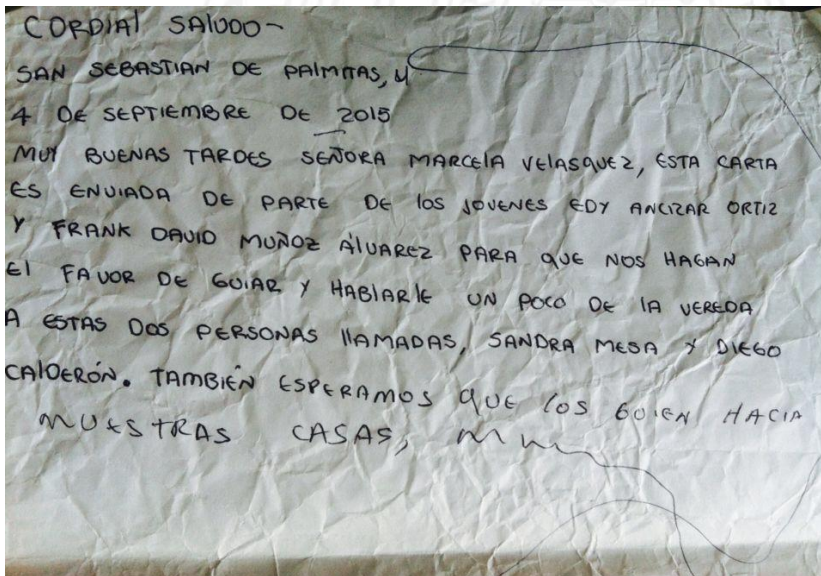 CORDIAL SALUDO-
SAN SEBASTIAN DE PALMITAS, Y
4 DE SEPTIEMBRE DE 2015
MUY BUENAS TARDES SEÑORA MARCELA VELASQUEZ, ESTA CARTA
ES ENVIADA DE PARTE DE LOS JOVENES EDY ANCIZAR ORTIZ
Y FRANK DAVID MUÑOZ ÁLVAREZ PARA QUE NOS HAGAN
EL FAVOR DE GUIAR Y HABLARLE UN POCO DE LA VEREDA
A ESTAS DOS PERSONAS LLAMADAS, SANDRA MESA Y DIEGO
CALDERÓN. TAMBIÉN ESPERAMOS QUE LOS GUIEN HACIA
NUESTRAS CASAS,